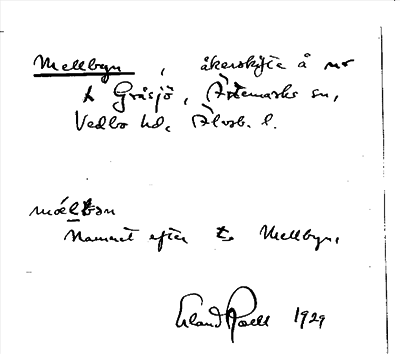 Mellbyn, åkerskifte å nr
1 Gråsjö, Ärtemarks sn,
Vedbo hd, Älvsb. l.
Namnet efter Mellbyn.
Erland Rosell 1929